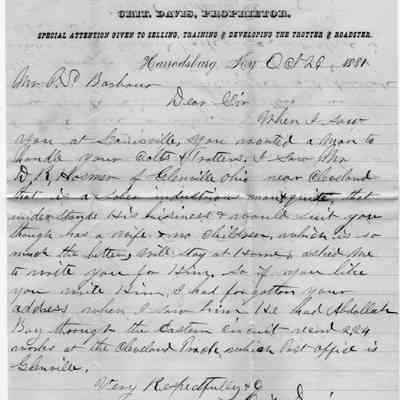 CRIT. DAVIS, PROPRIETOR.
SPECIAL ATTENTION GIVEN TO SELLING, TRAINING & DEVELOPING THE TROTTER & ROADSTER.
Harrodsburg, Ky Oct 29 1881
Mr
Dear Sir
When I saw
you at Louisville, you wanted a man to
handle your Colts & trotters. I saw Mr
D. R. Hosmer of Glenville Ohio near Cleveland
that is a sober industrious man & quite, that
understands His business & would suit you
though has a wife & no children, which is so
much the better, will stay at Home, asked me
to write you for Him, so if you like
you write Him, I had forgotten your
address when I saw him. He had Abdallah
Boy through the Eastern Circuit record 2.24
works at the Cleveland Track, which Post office is
Glenville.
Very Respectfully &c